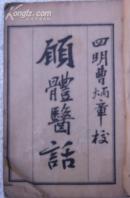 四明曹炳章校
顧體醫話